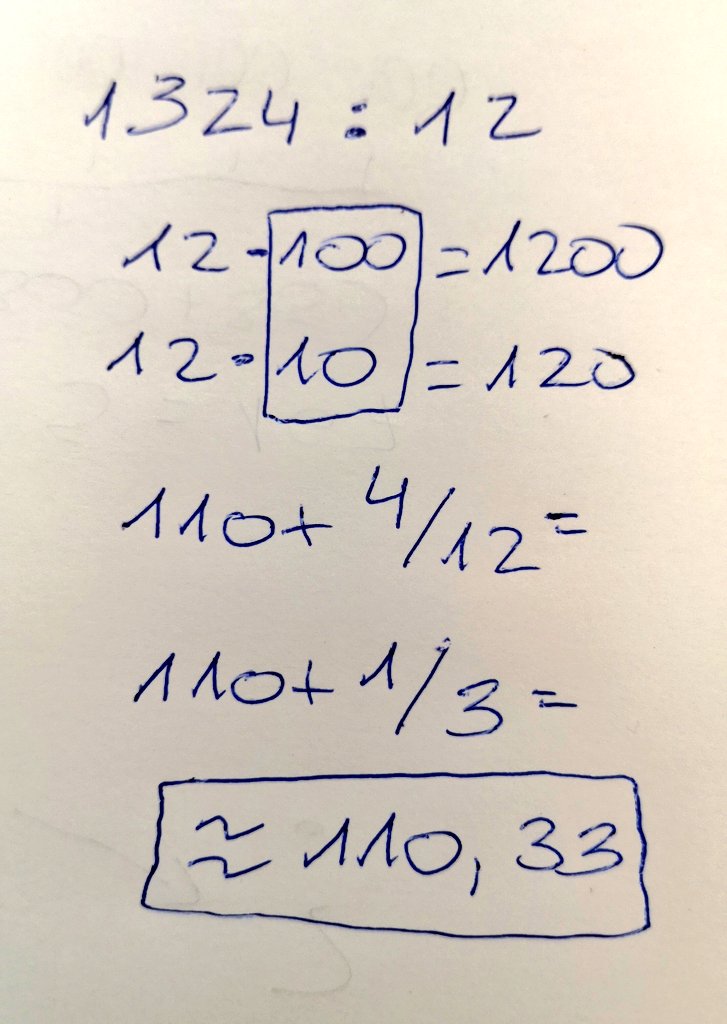 1324 : 12
12 · 100 = 1200
12 · 10 = 120
110 + 4/12 =
110 + 1/3 =
≈ 110,33